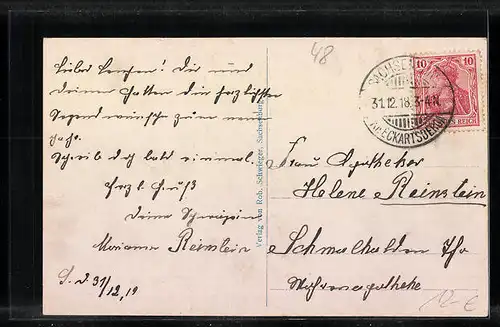 Liebes Lenchen! Dir und
Deinem Gatten die herzlichsten
Segenswünsche zum neuen
Jahr.
Schreib doch bald einmal.
Herzl. Gruß
Deine Schwägerin
Marianne Reinstein
31/
12. 18
Verlag von Rob. Schwieger, Sachsenburg
48
10 10
SACHSENB
31.12.18.3-4 N
ECKARTSBERGA
REICH
Frau Apotheker
Helene Reinstein
Schmalkalden Th.
apotheke
12.- €